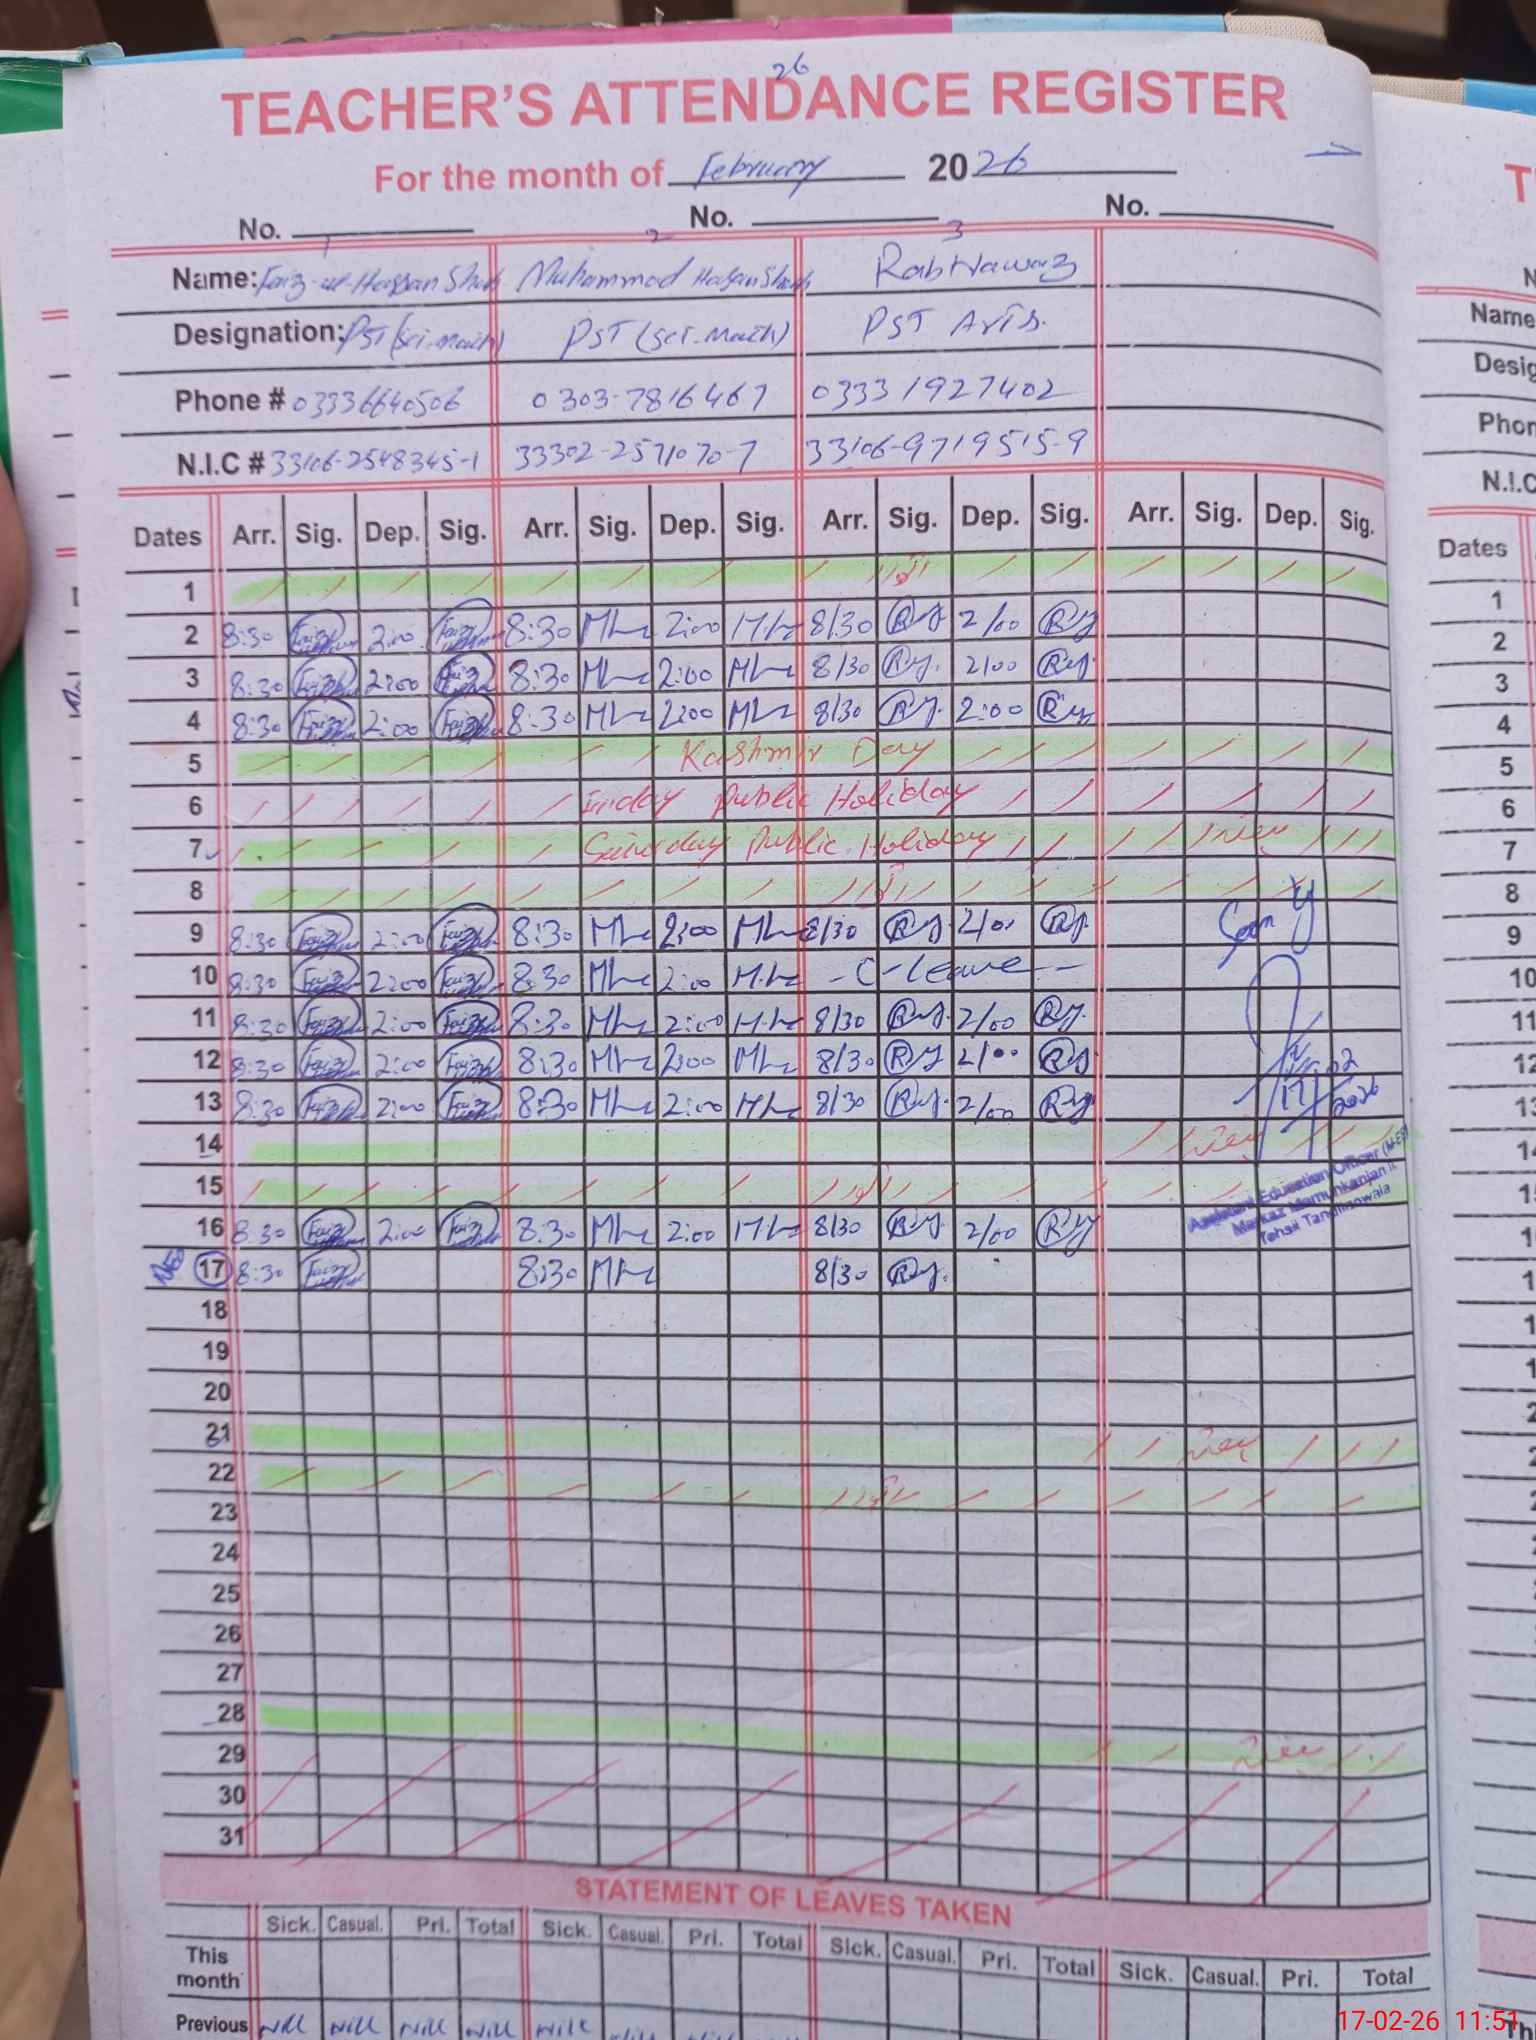 26
TEACHER'S ATTENDANCE REGISTER
For the month of February 2026
No. 1 No. 2 No. 3
Name: Faiz-ul-Hassan Shah Muhammad Hassan Shah Rab Nawaz
Designation: PST (Sci-Math) PST (Sci-Math) PST Arts.
Phone # 03336640506 0303-7816467 03331927402
N.I.C # 33106-2548345-1 33302-2571070-7 33106-9719515-9
Dates Arr. Sig. Dep. Sig. Arr. Sig. Dep. Sig. Arr. Sig. Dep. Sig. Arr. Sig. Dep. Sig.
1
2 8:30 Faiz 2:00 Faiz 8:30 2:00 8/30 2/00
3 8:30 Faiz 2:00 Faiz 8:30 2:00 8/30 2/00
4 8:30 Faiz 2:00 Faiz 8:30 2:00 8/30 2:00
5 Kashmir Day
6 Friday Public Holiday
7 Saturday Public Holiday
8
9 8:30 Faiz 2:00 Faiz 8:30 2:00 8/30 2/00 Seen
10 8:30 Faiz 2:00 Faiz 8:30 2:00 - C-Leave -
11 8:30 Faiz 2:00 Faiz 8:30 2:00 8/30 2/00
12 8:30 Faiz 2:00 Faiz 8:30 2:00 8/30 2/00
13 8:30 Faiz 2:00 Faiz 8:30 2:00 8/30 2/00 2026
14
Assistant Education Officer
15
Markaz Mamunkanjan
Tehsil Tandlianwala
16 8:30 Faiz 2:00 Faiz 8:30 2:00 8/30 2/00
17 8:30 Faiz 8:30 8/30
18
19
20
21
22
23
24
25
26
27
28
29
30
31
STATEMENT OF LEAVES TAKEN
Sick. Casual. Pri. Total Sick. Casual. Pri. Total Sick. Casual. Pri. Total Sick. Casual. Pri. Total
This month
Previous Nill Nill Nill Nill Nill
Name
Desig
Phon
N.I.C
Dates
1
2
3
4
5
6
7
8
9
10
11
12
13
17-02-26 11:51